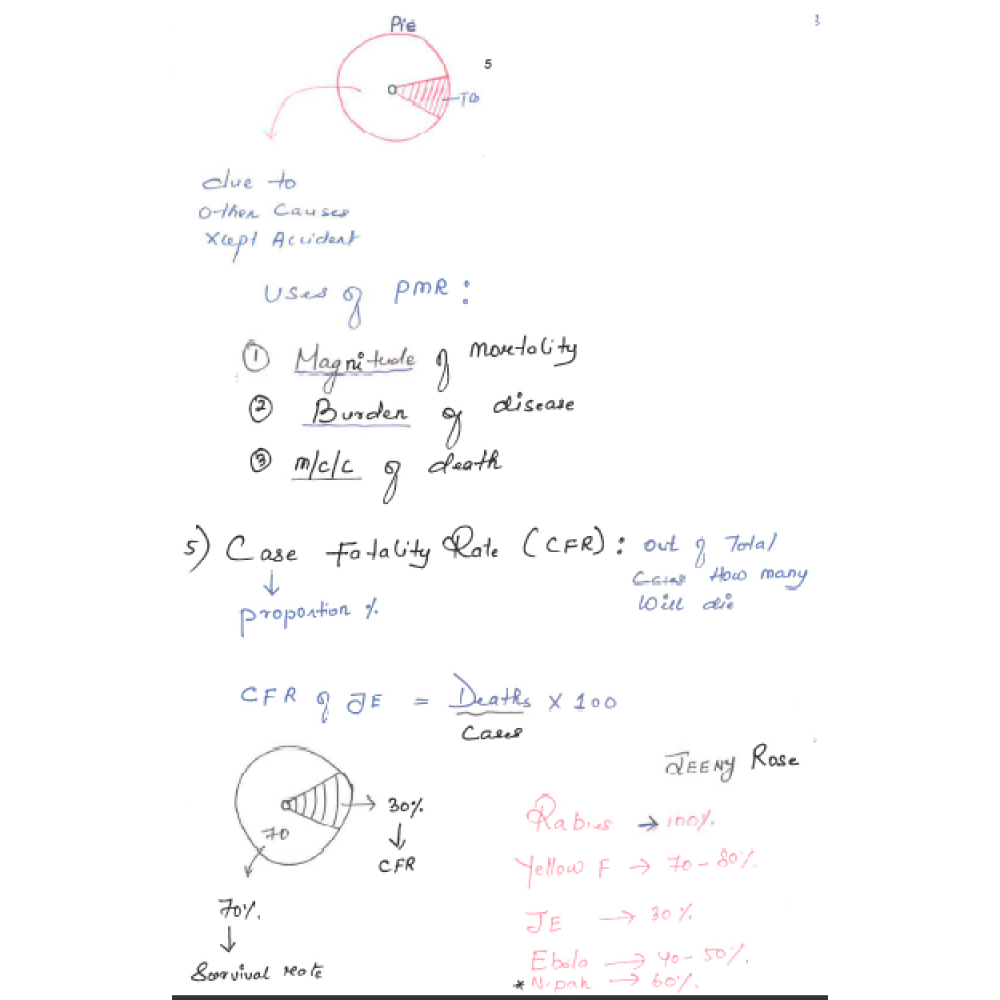 Pie
3
5
TB
due to
Other Causes
Xcept Accident
Uses of PMR :
① Magnitude of mortality
② Burden of disease
③ m/c/c of death
5) Case Fatality Rate (CFR) : out of Total
Cases How many
Will die
↓
proportion %
CFR of JE = Deaths × 100
Cases
JEENY Rose
→ 30%
↓
CFR
70
70%
↓
Survival rate
Rabies → 100%
Yellow F → 70-80%
JE → 30%
Ebola → 40-50%
* Nipah → 60%